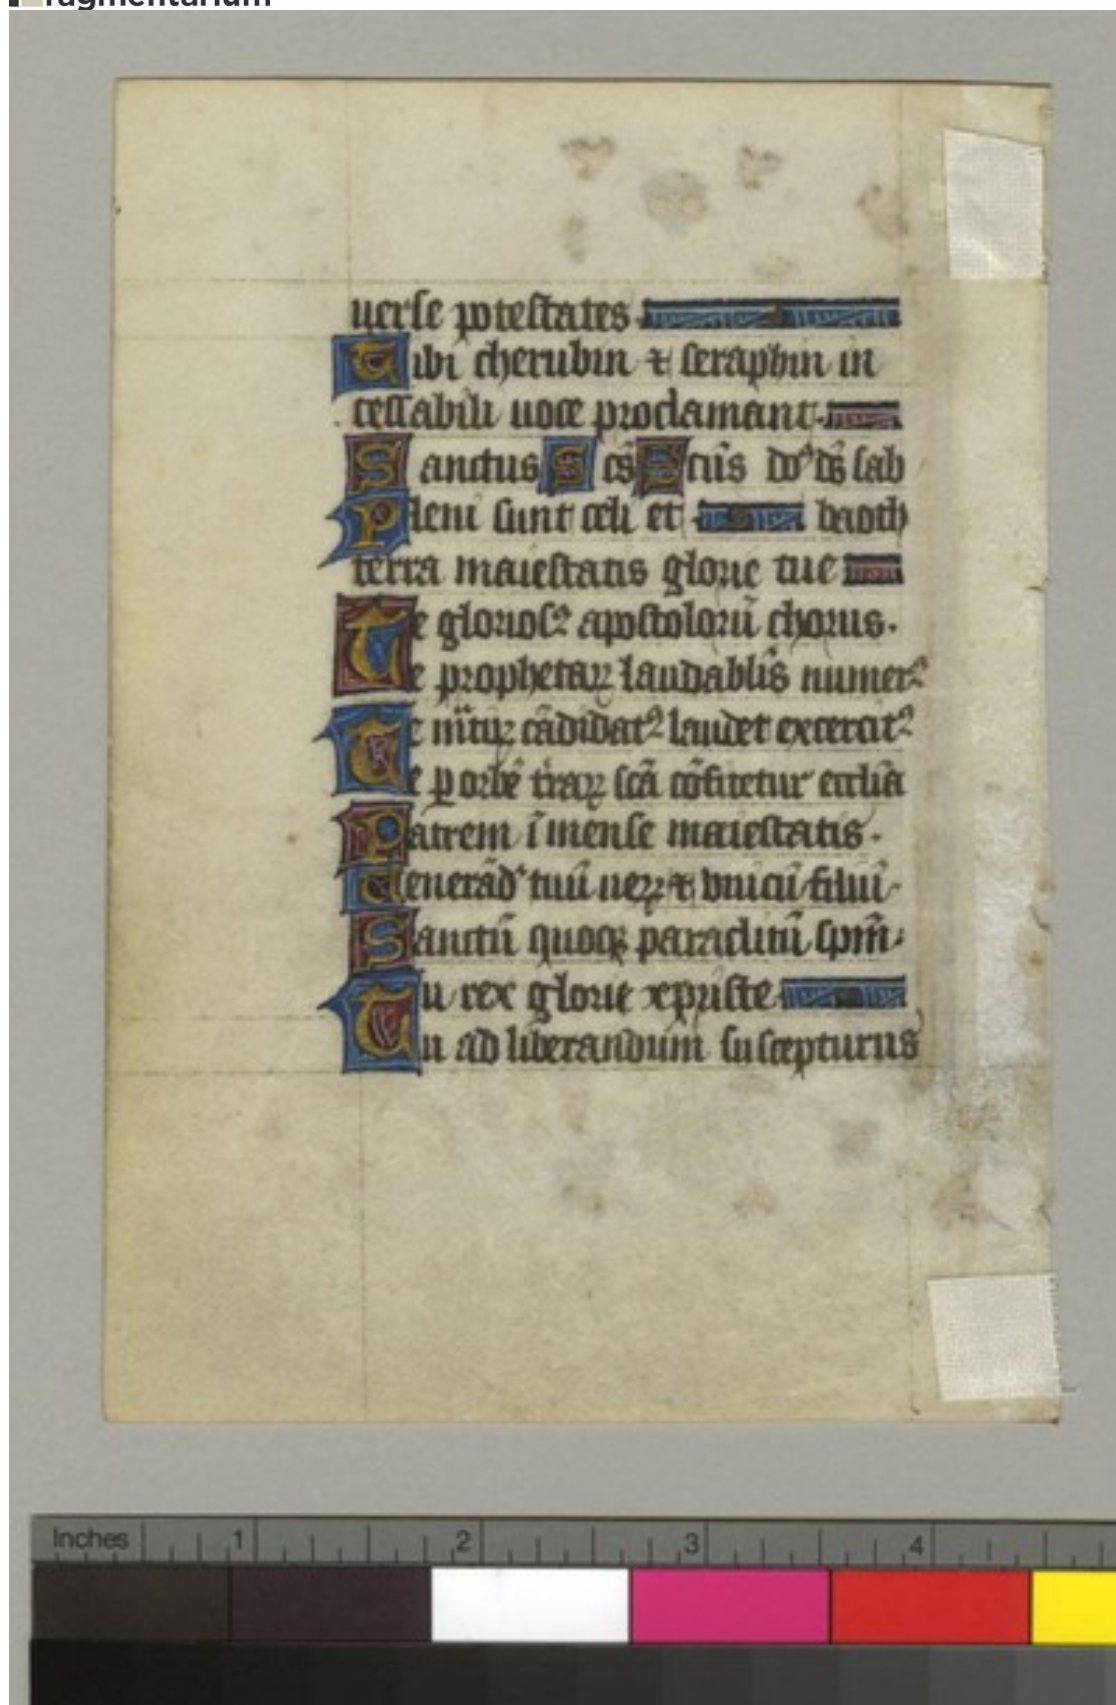 ragmentarium
uerse potestates
Tibi cherubin ⁊ seraphin in
cessabili uoce proclamant.
Sanctus S cs̄ Sctūs dn̄s ds̄ sab
Pleni sunt celi et baoth
terra maiestatis glorie tue
Te glorios᷒ apostolorū chorus.
Te prophetaꝝ laudablīs numer᷒
Te mr̄tiꝝ cādidat᷒ laudet excercit᷒
Te ꝑ orbē tr̄aꝝ scā cōfitetur ecclīa
Patrem īmense maiestatis.
Uenerād᷒ tuū ueꝝ ⁊ vnicū filiū.
Sanctū quoqꝫ paraclitū spm̄.
Tu rex glorie xpriste
Tu ad liberandum suscepturus
Inches 1 2 3 4